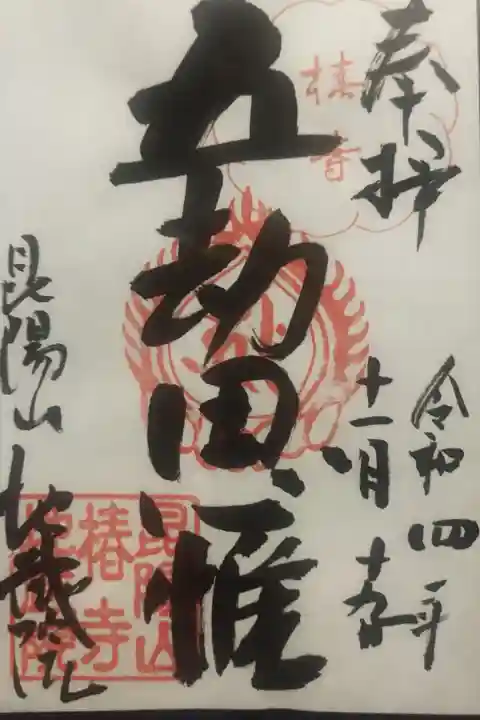 奉拝
令和四年
十一月十九日
椿寺
五劫思惟
昆陽山
地蔵院
昆陽山
椿寺
地蔵院